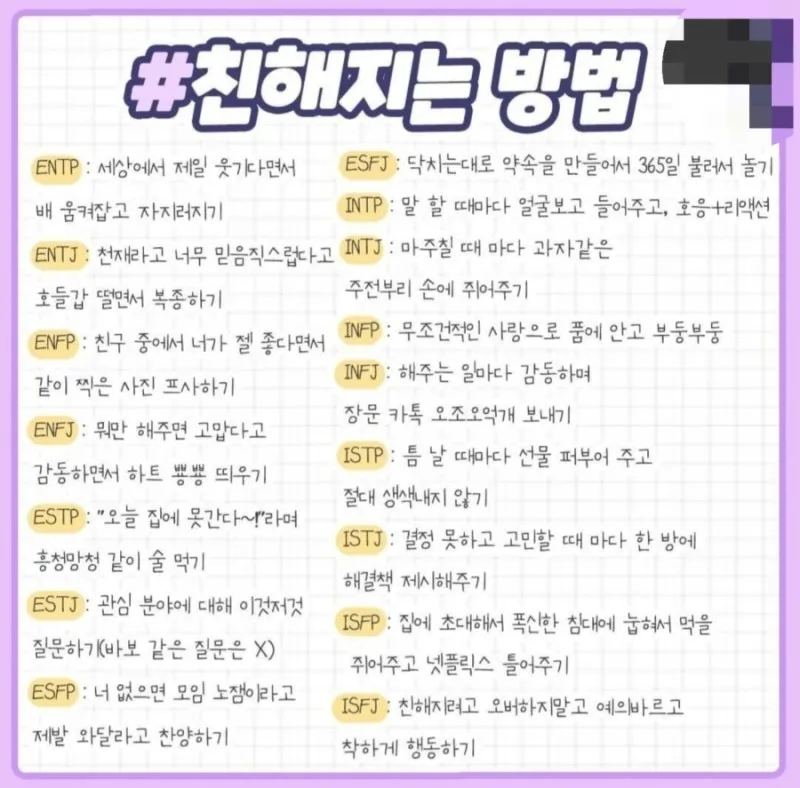 #친해지는 방법
ENTP : 세상에서 제일 웃기다면서
배 움켜잡고 자지러지기
ENTJ : 천재라고 너무 믿음직스럽다고
호들갑 떨면서 복종하기
ENFP : 친구 중에서 너가 젤 좋다면서
같이 찍은 사진 프사하기
ENFJ : 뭐만 해주면 고맙다고
감동하면서 하트 뿅뿅 띄우기
ESTP : "오늘 집에 못간다~!"라며
흥청망청 같이 술 먹기
ESTJ : 관심 분야에 대해 이것저것
질문하기(바보 같은 질문은 X)
ESFP : 너 없으면 모임 노잼이라고
제발 와달라고 찬양하기
ESFJ : 닥치는대로 약속을 만들어서 365일 불러서 놀기
INTP : 말 할 때마다 얼굴보고 들어주고, 호응+리액션
INTJ : 마주칠 때 마다 과자같은
주전부리 손에 쥐어주기
INFP : 무조건적인 사랑으로 품에 안고 부둥부둥
INFJ : 해주는 일마다 감동하며
장문 카톡 오조오억개 보내기
ISTP : 틈 날 때마다 선물 퍼부어 주고
절대 생색내지 않기
ISTJ : 결정 못하고 고민할 때 마다 한 방에
해결책 제시해주기
ISFP : 집에 초대해서 폭신한 침대에 눕혀서 먹을
쥐어주고 넷플릭스 틀어주기
ISFJ : 친해지려고 오버하지말고 예의바르고
착하게 행동하기